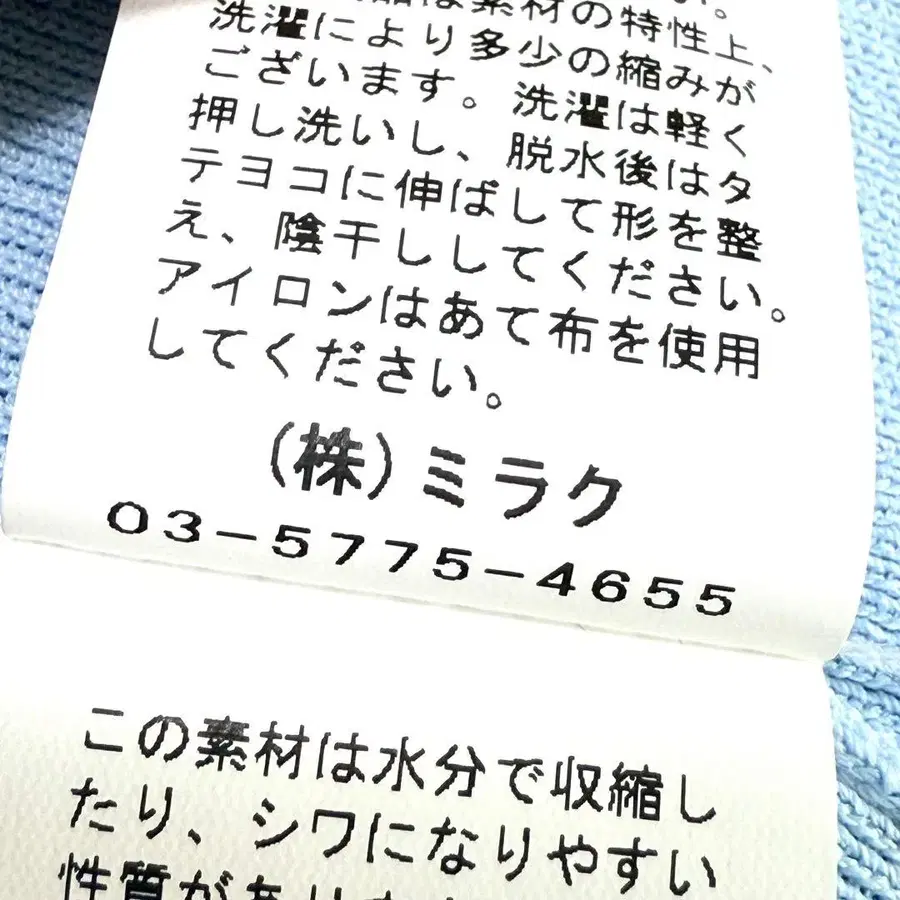 は素材の特性上、
洗濯により多少の縮みが
ございます。洗濯は軽く
押し洗いし、脱水後はタ
テヨコに伸ばして形を整
え、陰干ししてください。
アイロンはあて布を使用
してください。
(株)ミラク
03-5775-4655
この素材は水分で収縮し
たり、シワになりやすい
性質があり